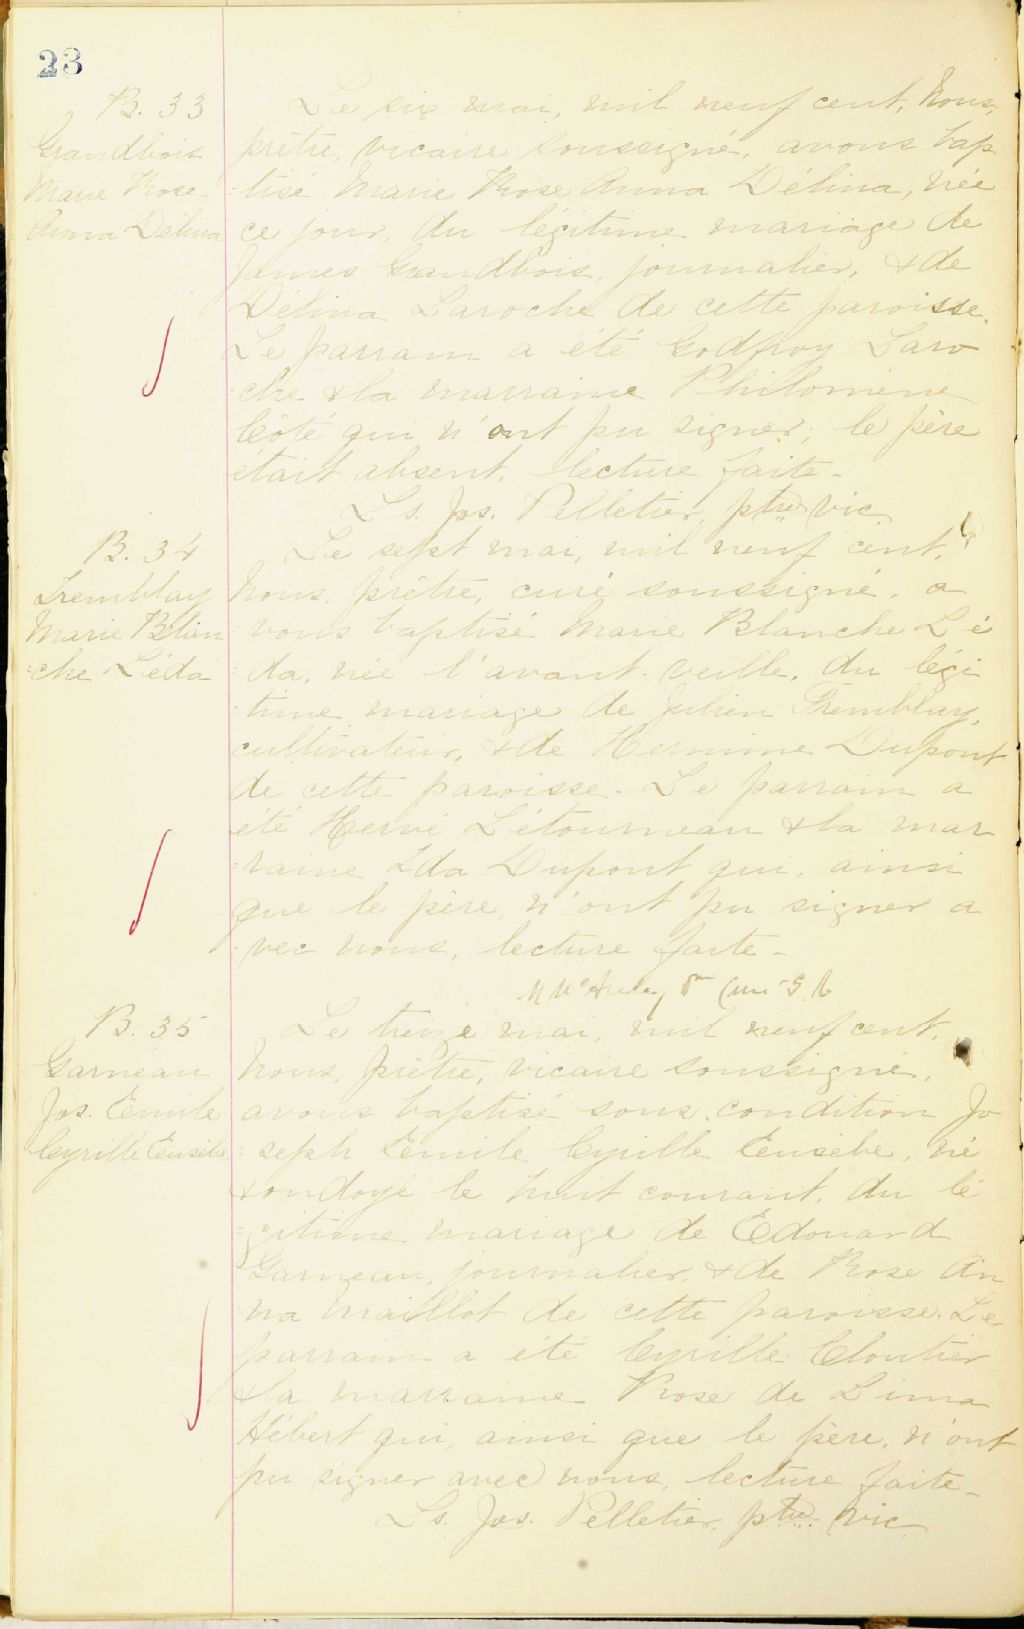 23
B. 33
Grandbois
Marie Rose
Anna Délina
Le six mai, mil neuf cent, Nous,
prêtre, vicaire soussigné, avons bap
-tisé Marie Rose Anna Délina, née
ce jour, du légitime mariage de
James Grandbois, journalier, & de
Délina Laroche de cette paroisse.
Le parrain a été Godfroy Laro
-che & la marraine Philomène
Côté qui n'ont pu signer; le père
était absent, lecture faite-
Ls. Jos. Pelletier, ptre vic.
B. 34
Tremblay
Marie Blan
-che Léda
Le sept mai, mil neuf cent,
Nous, prêtre, curé soussigné, a
-vons baptisé Marie Blanche Lé
-da, née l'avant-veille, du légi
-time mariage de Julien Tremblay,
cultivateur, & de Hermine Dupont
de cette paroisse. Le parrain a
été Hervé Létourneau & la mar
-raine Ida Dupont qui, ainsi
que le père, n'ont pu signer a
-vec nous, lecture faite-
B. 35
Garneau
Jos. Emile
Cyrille Eusèbe
Le treize mai, mil neuf cent,
Nous, prêtre, vicaire soussigné,
avons baptisé sous condition Jo
-seph Emile Cyrille Eusèbe, né
& ondoyé le huit courant, du lé
-gitime mariage de Edouard
Garneau, journalier, & de Rose An
-na Maillot de cette paroisse. Le
parrain a été Cyrille Cloutier
& la marraine Rose de Lima
Hébert qui, ainsi que le père, n'ont
pu signer avec nous, lecture faite-
Ls. Jos. Pelletier, ptre. vic.